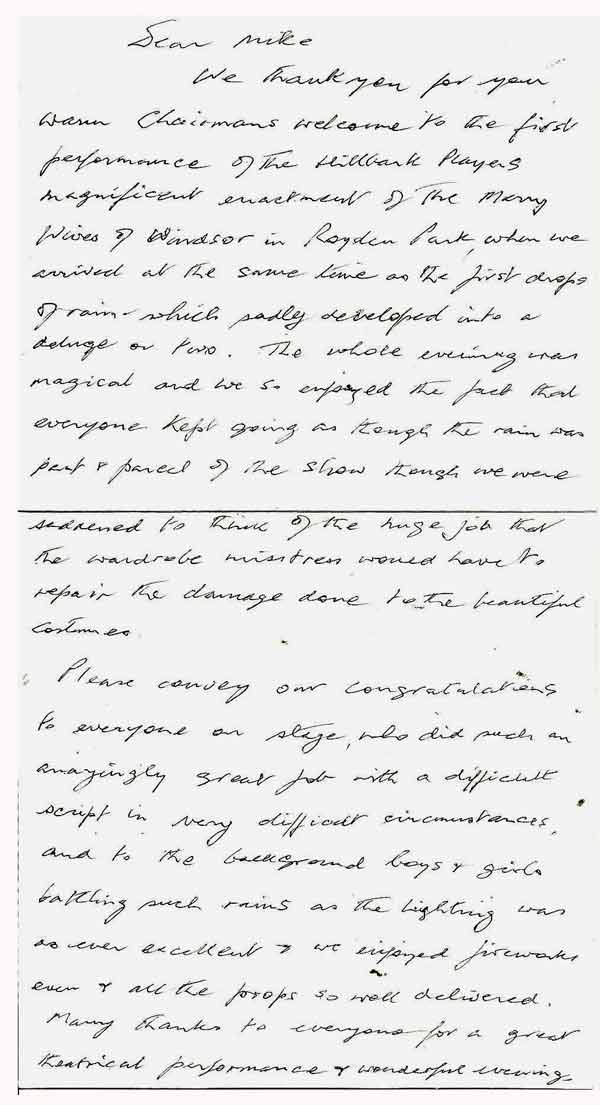 Dear Mike
We thank you for your
warm Chairmans welcome to the first
performance of the Hillbark Players
magnificent enactment of The Merry
Wives of Windsor in Royden Park, when we
arrived at the same time as the first drops
of rain - which sadly developed into a
deluge or two. The whole evening was
magical and we so enjoyed the fact that
everyone kept going as though the rain was
part & parcel of the show though we were
saddened to think of the huge job that
the wardrobe misstress would have to
repair the damage done to the beautiful
costumes
Please convey our congratulations
to everyone on stage, who did such an
amazingly great job with a difficult
script in very difficult circumstances,
and to the background boys & girls
battling such rains as the lighting was
as ever excellent & we enjoyed fireworks
even & all the props so well delivered.
Many thanks to everyone for a great
theatrical performance & wonderful evening.